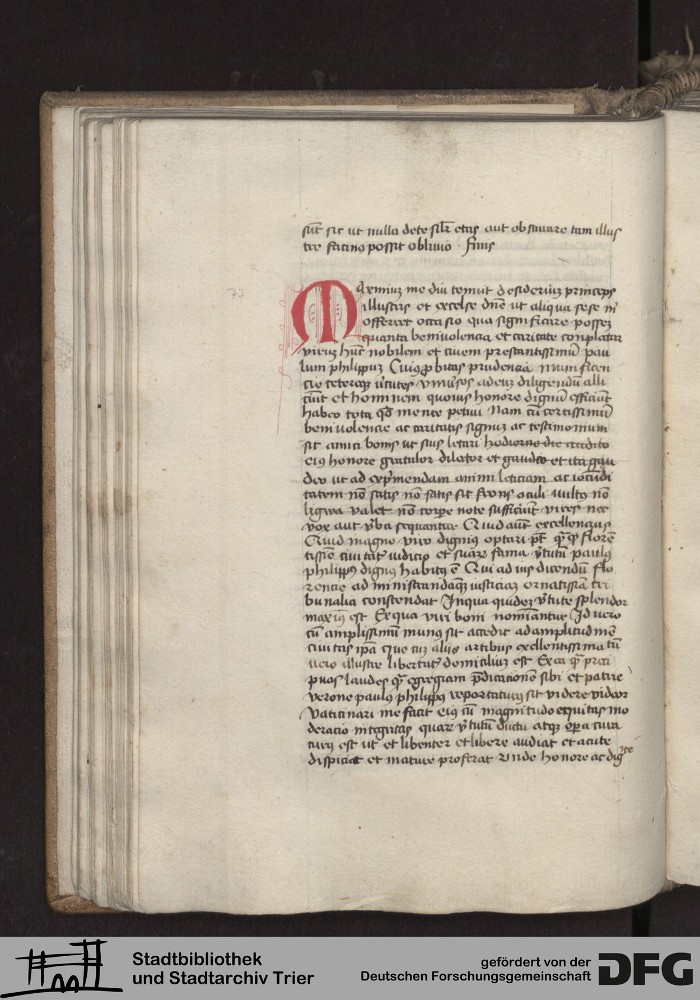 sut sic ut nulla dete silr etas aut obscurare tam illus
tre facinus possit oblivio · finis
77
Maximuz me diu tenuit desideriuz princeps
illustris et excelse dne ut aliqua sese mi
offerret occasio qua significare possez
quanta benivolencia et caritate complectar
virum hunc nobilem et civem prestantissimu pau
lum philippuz Cuius probitas prudencia munificen
cie ceterequz virtutes universos ad eius diligendu alli
ciunt et hominem quovis honore dignu efficiut
habeo tota qd mente petivi Nam cu certissimu
benivolencie ac caritatis signuz ac testimonium
sit amici bonis ut suis letari hodierno die accedito
eius honore gratulor dilator et gaudeo et ita gau
deo ut ad exprimendam animi leticiam ac iocudi
tatem no satis no satis sit frons oculi vultus no
ligwa valet no corpe note sufficiut vires nec
vox aut vba sequantur Quid aut excellencius
Quid magno viro dignius optari pt qz qp floren
tissie civitat iudicio et suaze fama vtutu paulus
philippus dignus habitus e Qui ad ius dicendu flo
rencie ad ministrandaqz iusticiaz ornatissia tri
bunalia conscendat In qua quidez vtute splendor
maxius est Ex qua viri boni nominantur Id vero
cu amplissimu munus sit accedit ad amplitudine
civitas ipa Que cuz aliis artibus exellentissima tu
vero illustre libertat domiciliuz est Ex ea qz preci
puas laudes qz egregiam pdicationem sibi et patrie
verone paulus philippus reportaturus sit videre videor
Vaticinari me facit eius cu magnitudo equitas mo
deracio integritas quare vtutu ductu atqz opera cura
turus est ut et libenter et libere audiat et acute
dispiciat et mature proferat Unde honore ac dig
ite
Stadtbibliothek
und Stadtarchiv Trier
gefördert von der
Deutschen Forschungsgemeinschaft
DFG